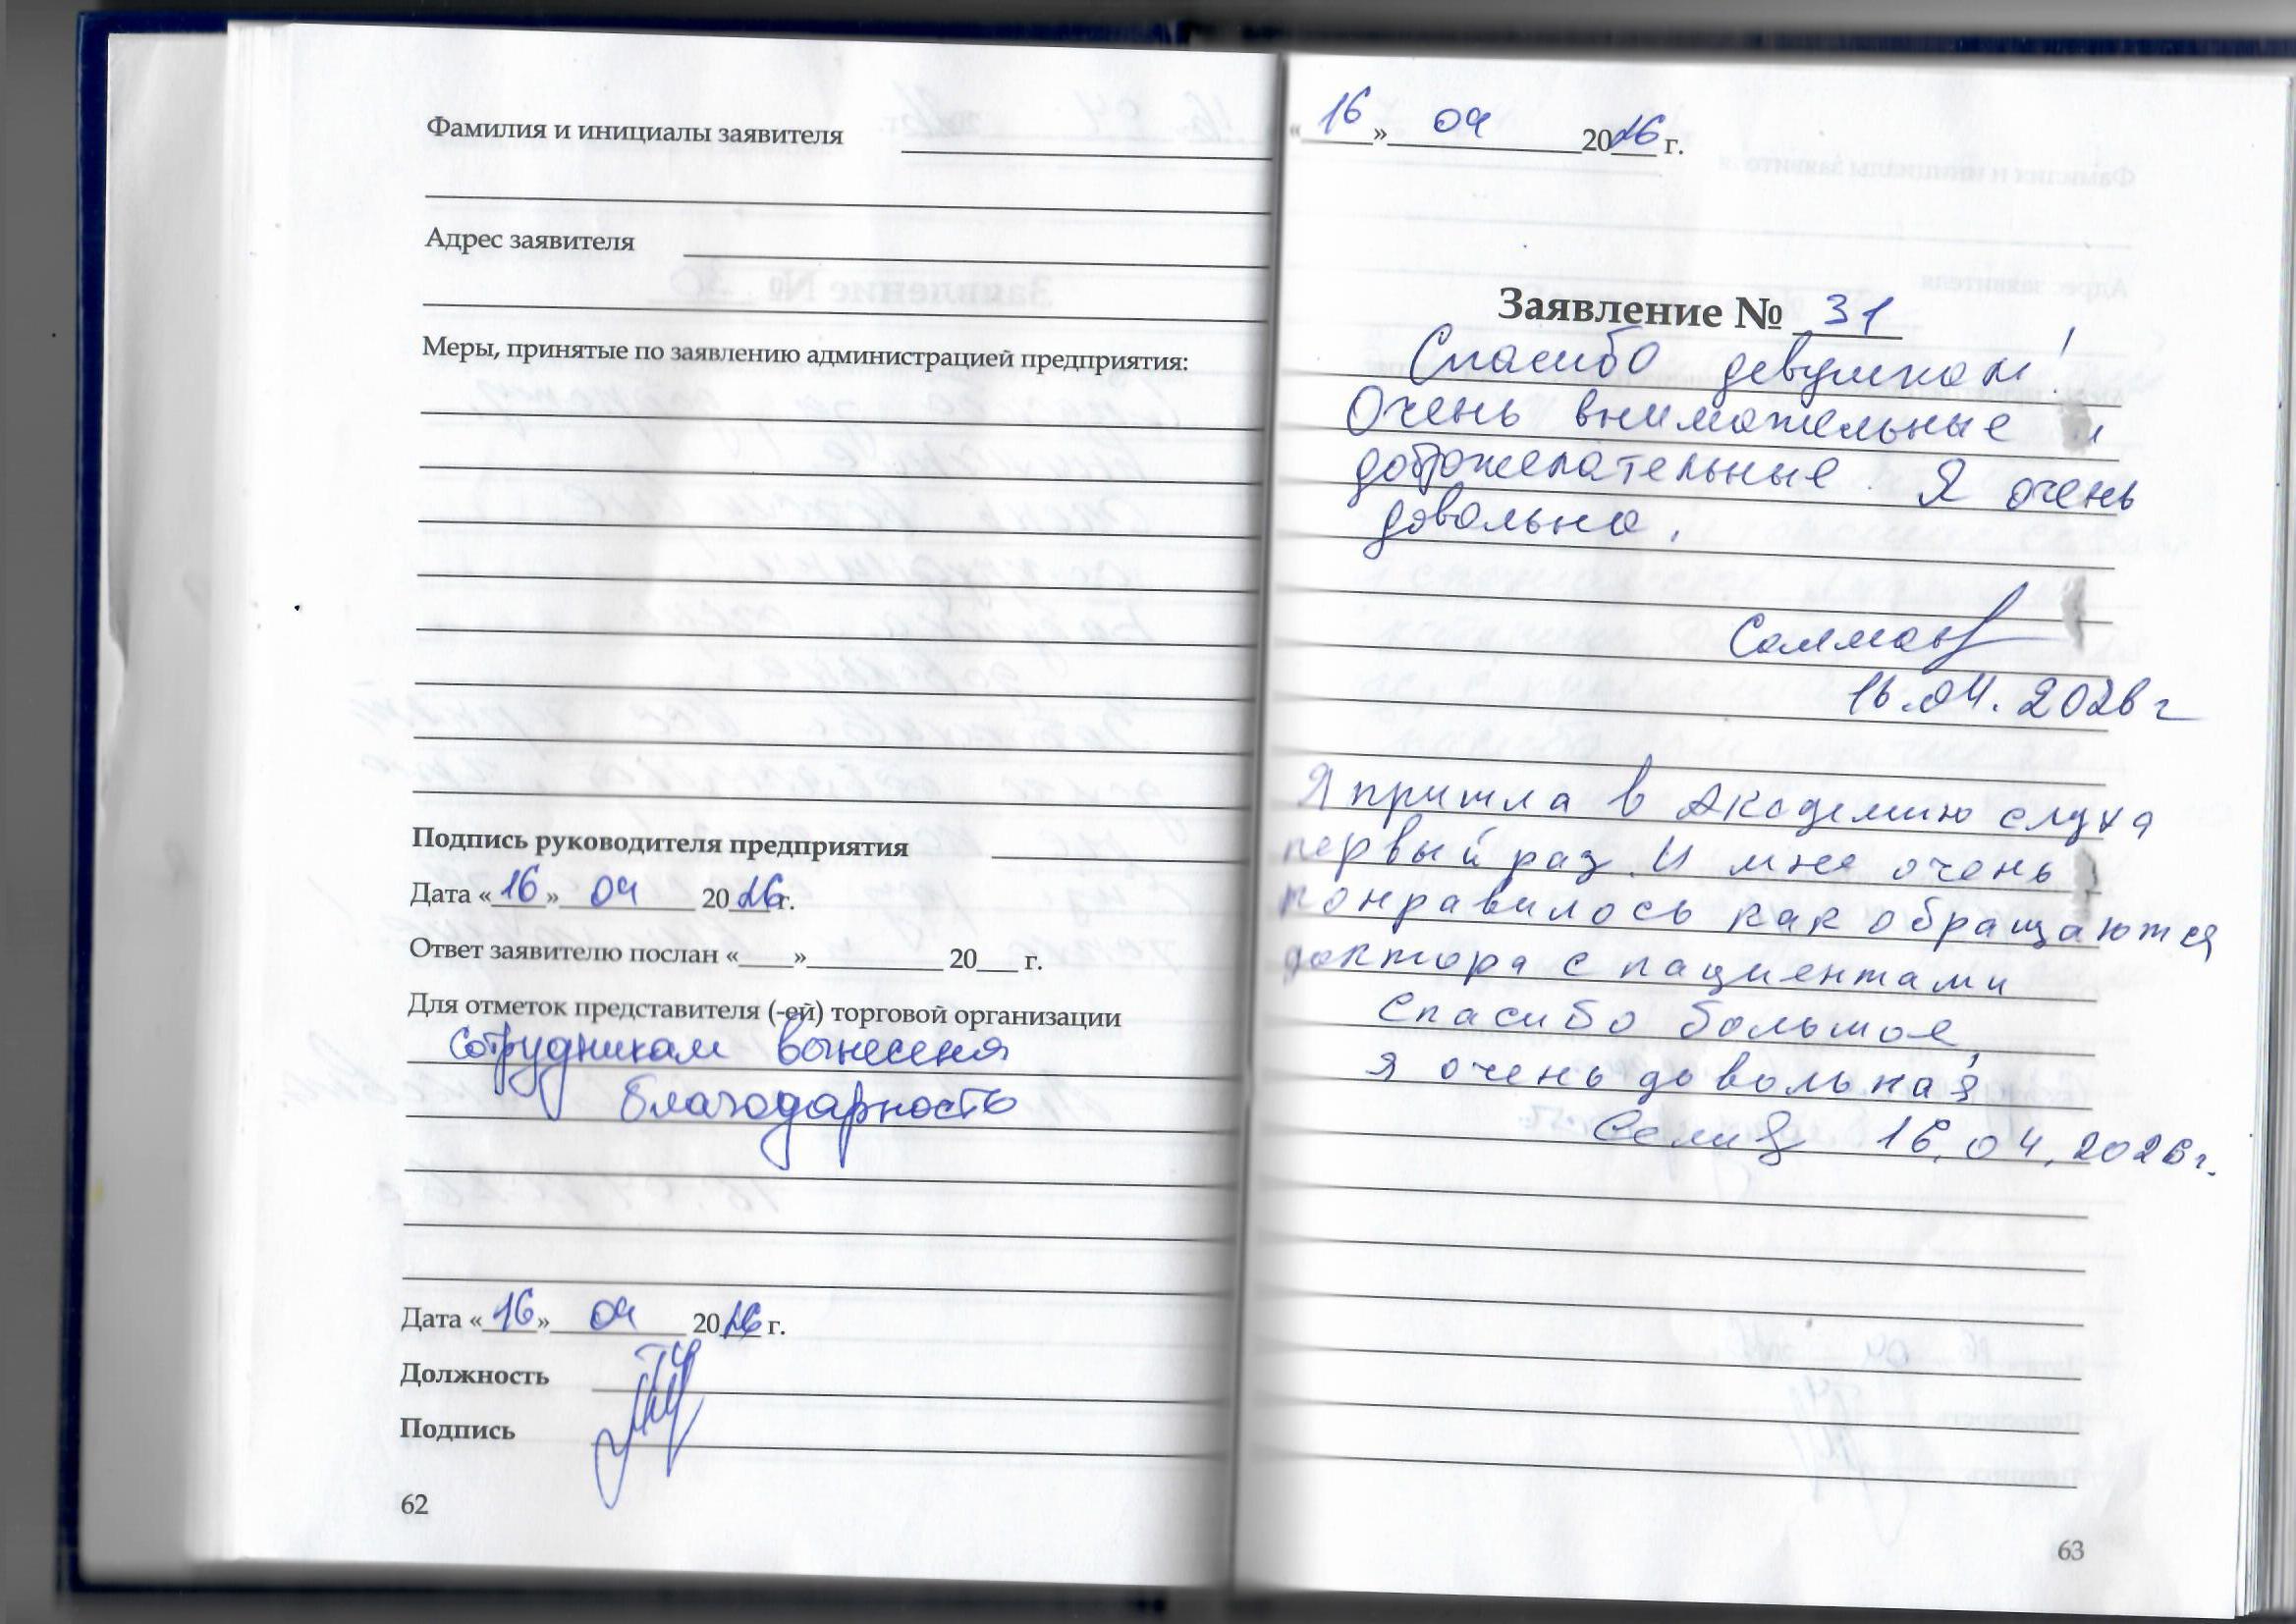 Фамилия и инициалы заявителя
Адрес заявителя
Меры, принятые по заявлению администрацией предприятия:
Подпись руководителя предприятия
Дата «16» 04 2026г.
Ответ заявителю послан «___»_________ 20___ г.
Для отметок представителя (-ей) торговой организации
Сотрудникам вынесена
благодарность
Дата «16» 04 2026 г.
Должность
Подпись
62
«16» 04 2026 г.
Заявление № 31
Спасибо девушкам!
Очень внимательные и
доброжелательные. Я очень
довольна.
16.04.2026 г
Я пришла в Академию слуха
первый раз. И мне очень
понравилось как обращаются
доктора с пациентами
Спасибо большое,
я очень довольная
16.04.2026 г.
63